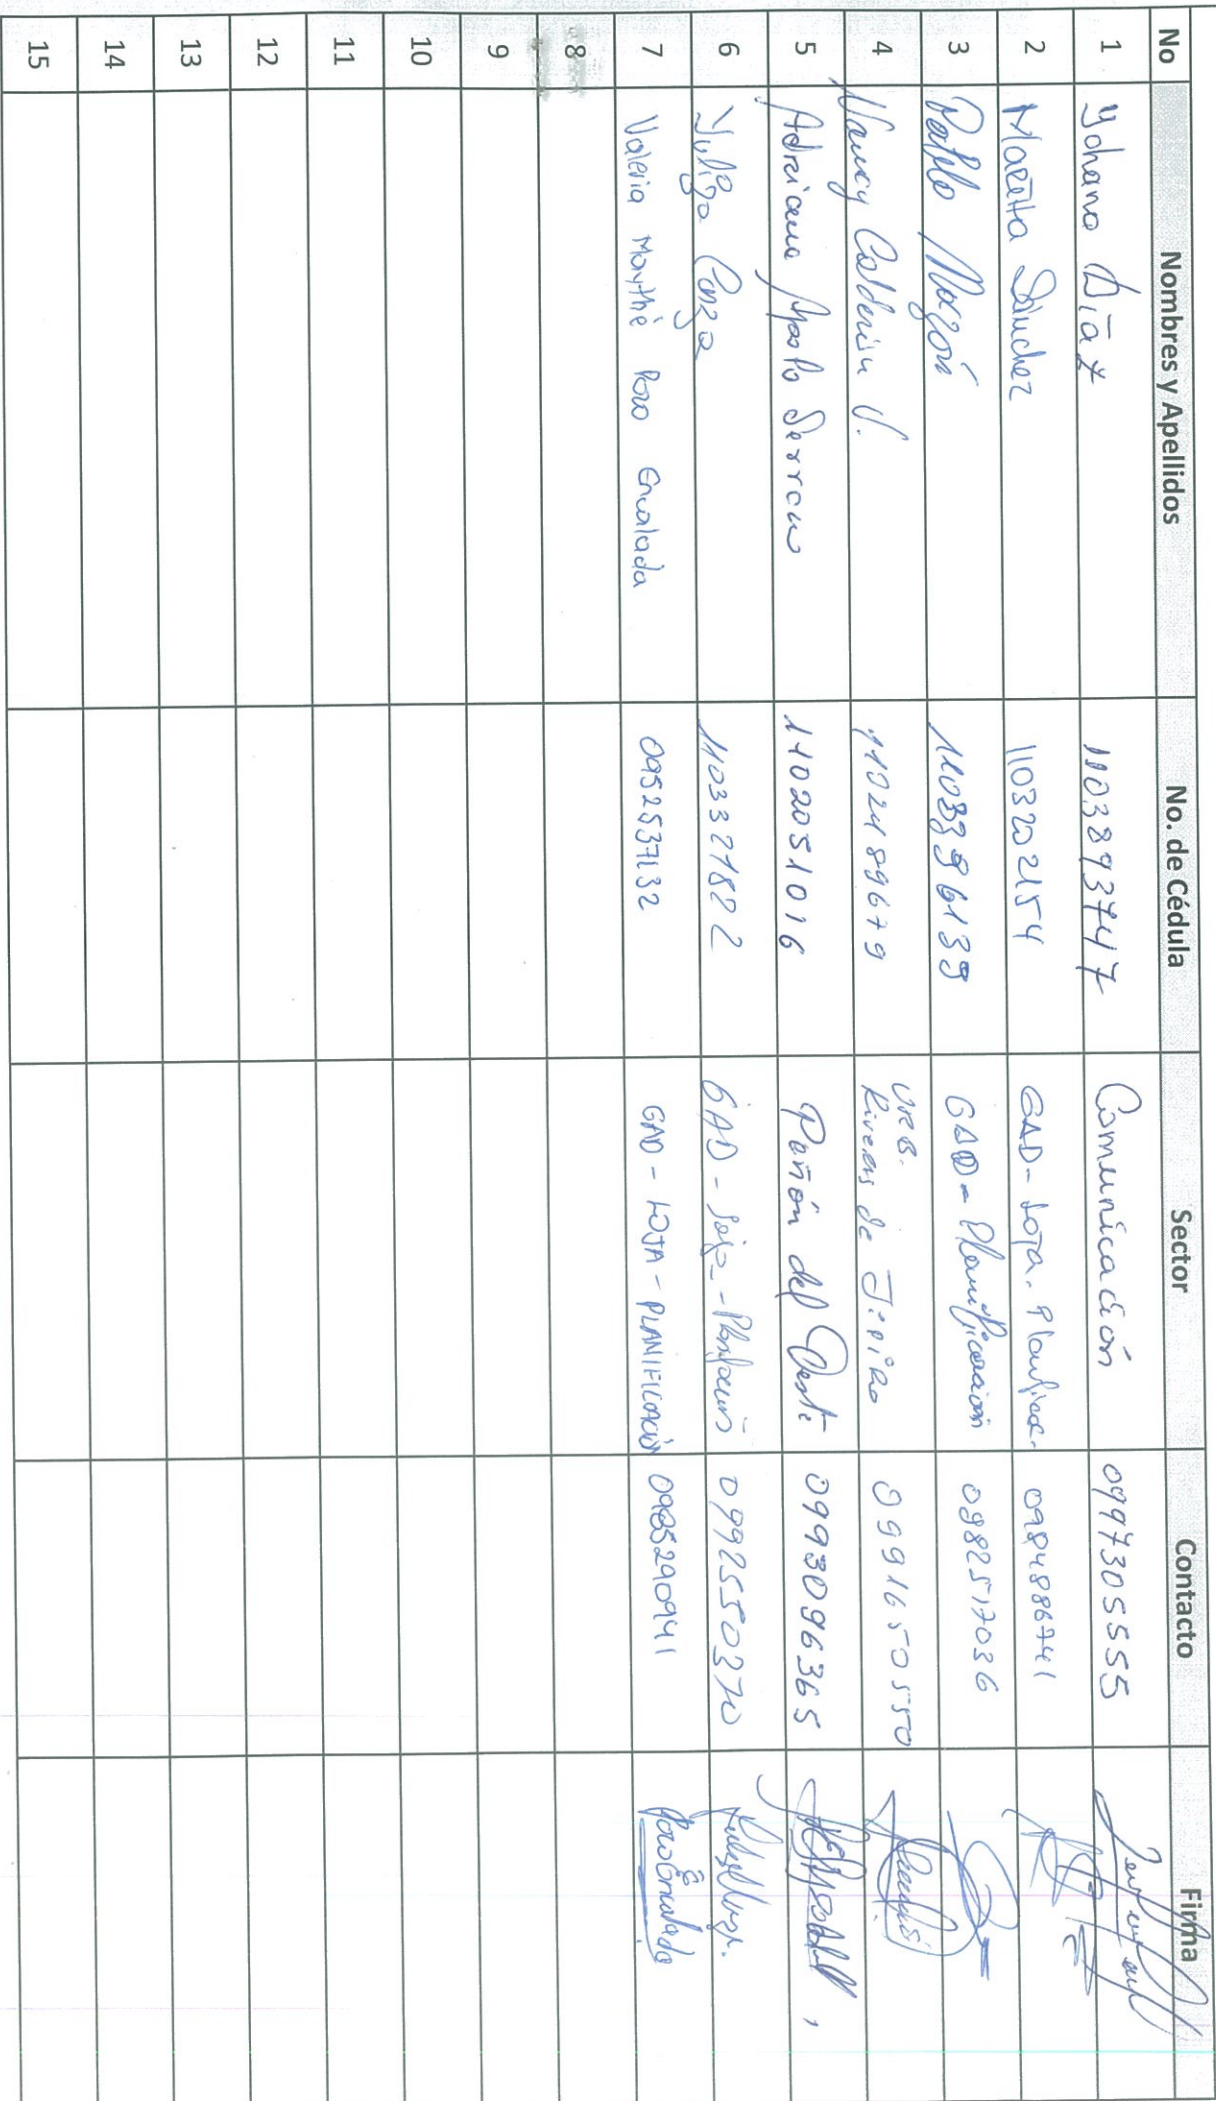 No Nombres y Apellidos No. de Cédula Sector Contacto Firma
1 Yohana Díaz 1103893747 Comunicación 0997305555
2 Maretta Sánchez 1103202154 GAD-Loja. Planificac. 0984886741
3 Pablo 1103396139 GAD - Planificación 0982517036
4 Nancy Calderón V. 1102489679 URB. Riveras de Jipiro 0991650550
5 Adriana Apolo Serrano 1102051016 Peñón del Oeste 0993096365
6 1103321822 GAD - Loja - 0992550370
7 Valeria Maythé Pozo Encalada 0952537132 GAD - LOJA - PLANIFICACIÓN 0985290941 Pozo Encalada
8
9
10
11
12
13
14
15